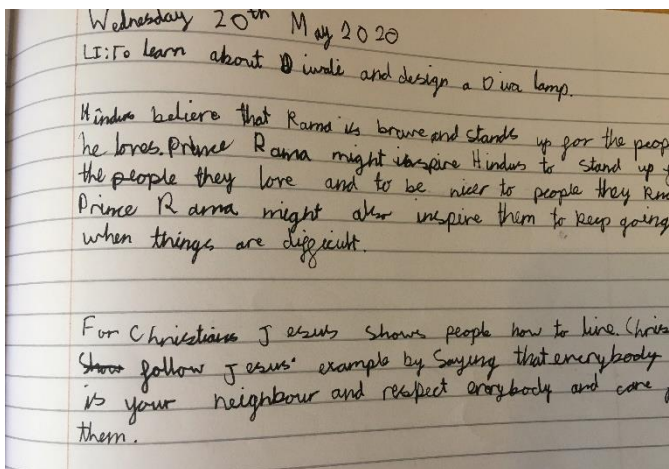 Wednesday 20th May 2020
LI: To learn about Diwali and design a Diva lamp.
Hindus believe that Rama is brave and stands up for the peop
he loves. Prince Rama might inspire Hindus to stand up f
the people they love and to be nicer to people they kn
Prince Rama might also inspire them to keep going
when things are difficult.
For Christians Jesus shows people how to live. Chris
follow Jesus' example by saying that everybody
is your neighbour and respect everybody and care f
them.